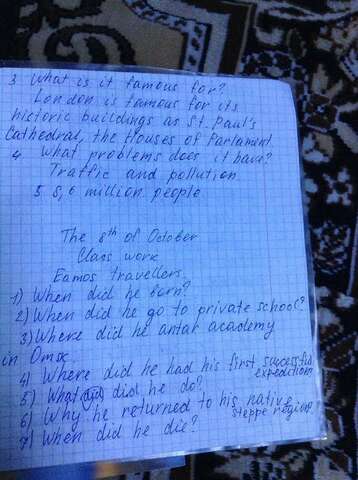 3 What is it famous for?
London is famous for its
historic buildings as St. Paul's
Cathedral, the Houses of Parlament
4 What problems does it have?
Traffic and pollution
5. 8,6 million people
The 8th of October
Class work
Eamos travellers
1) When did he born?
2) When did he go to private school?
3) Where did he antak academy
in Omsk
4) Where did he had his first successful
expedition
5) What did did he do?
6) Why he returned to his native
steppe region?
7) When did he die?